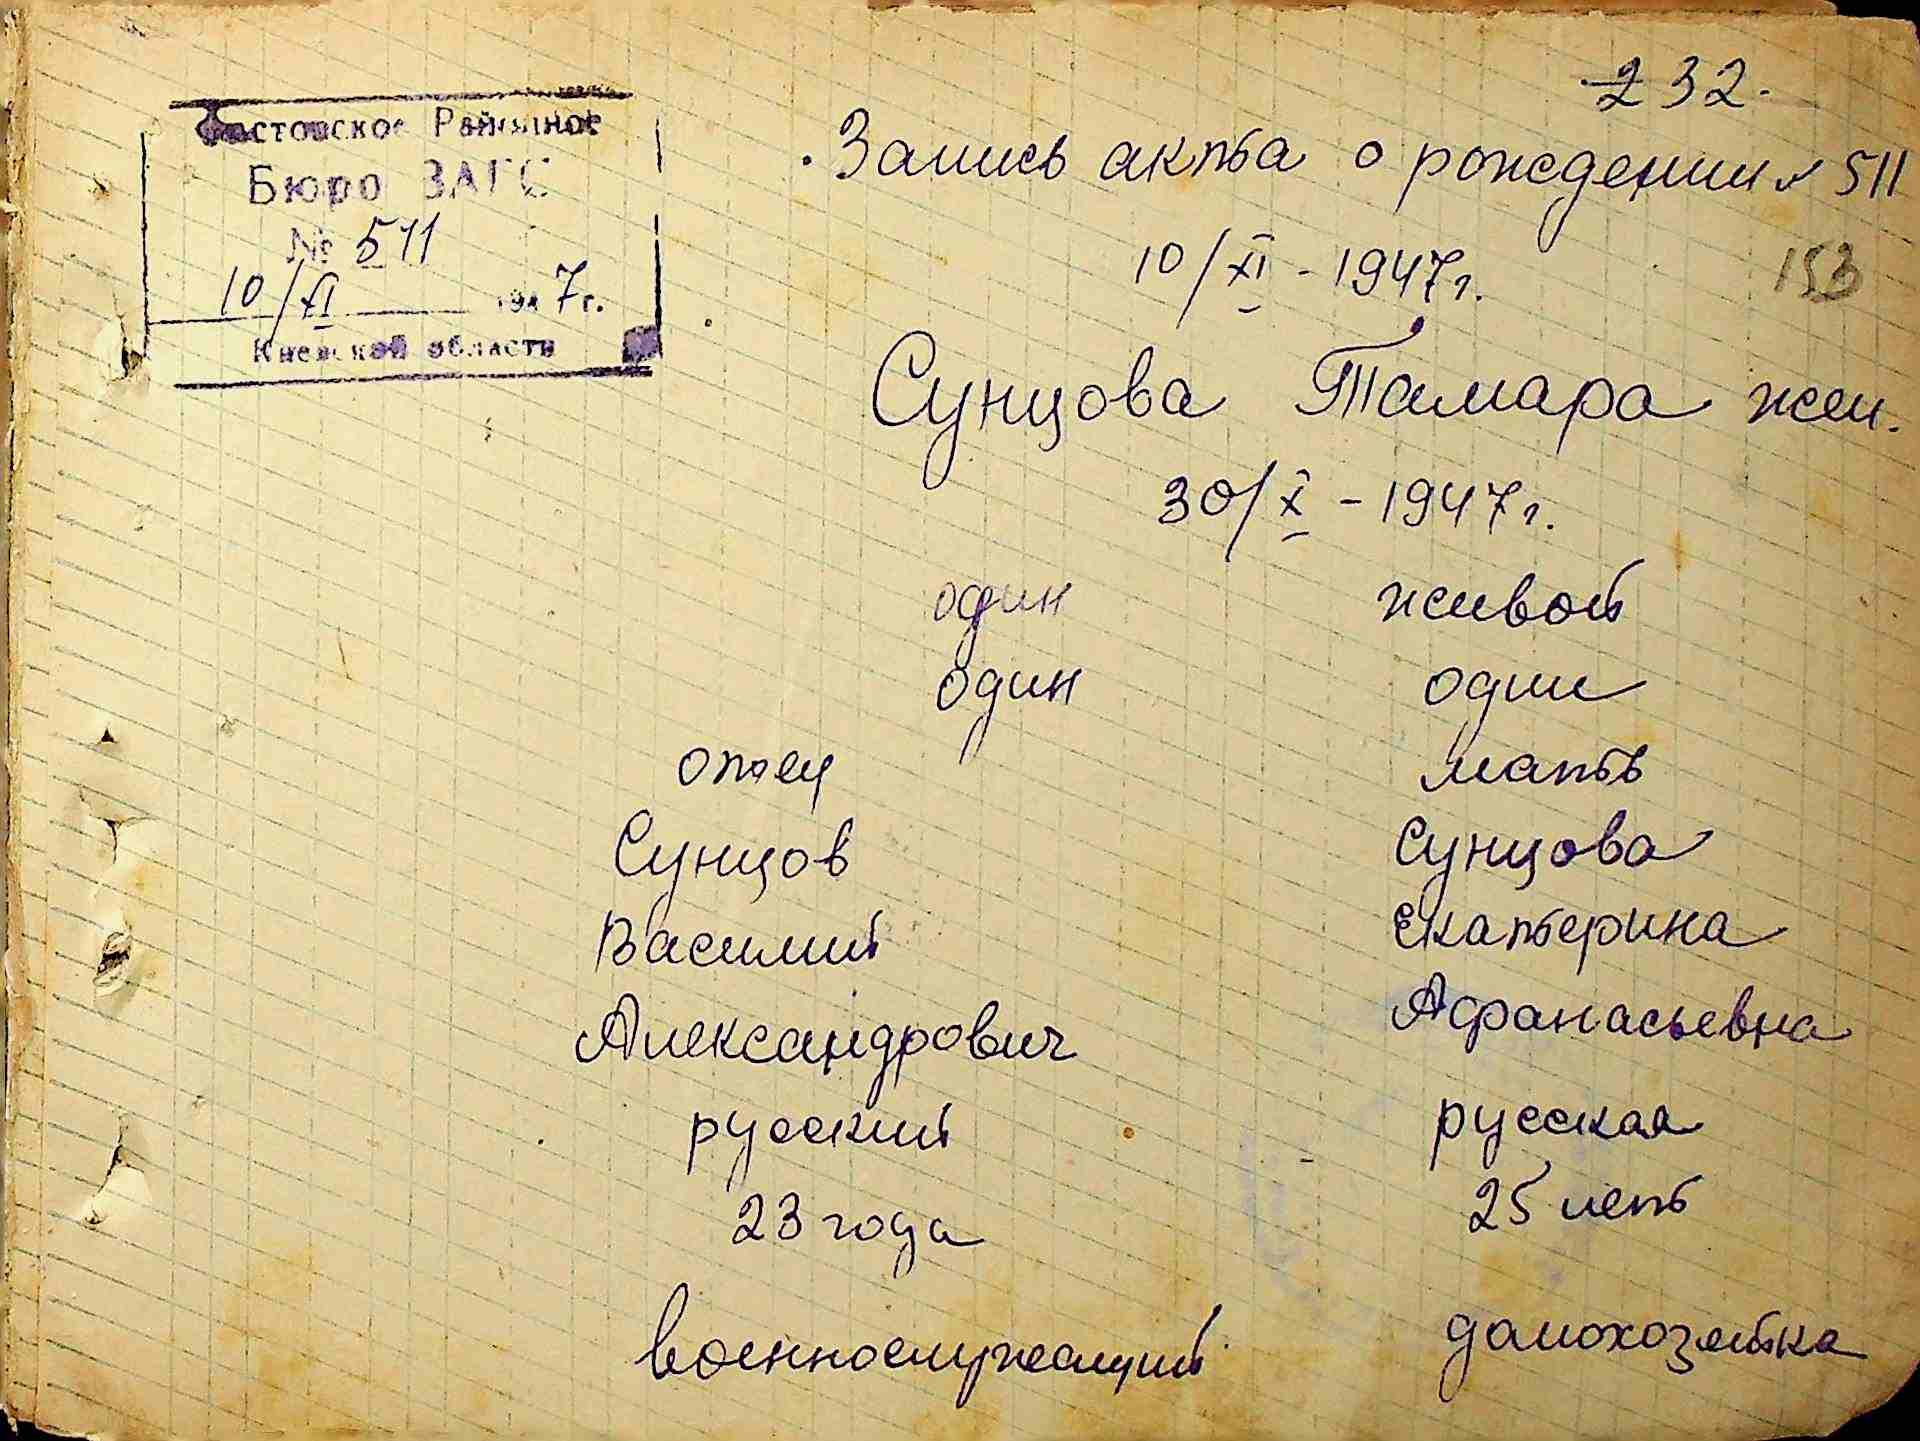 232.
Фастовское Районное
Бюро ЗАГС
№ 511
10/XI 1947г.
Киевской области
Запись акта о рождении № 511
10/XI - 1947г.
153
Сунцова Тамара жен.
30/X - 1947г.
один живой
один один
отец мать
Сунцов Сунцова
Василий Екатерина
Александрович Афанасьевна
русский русская
23 года 25 лет
военнослужащий домохозяйка